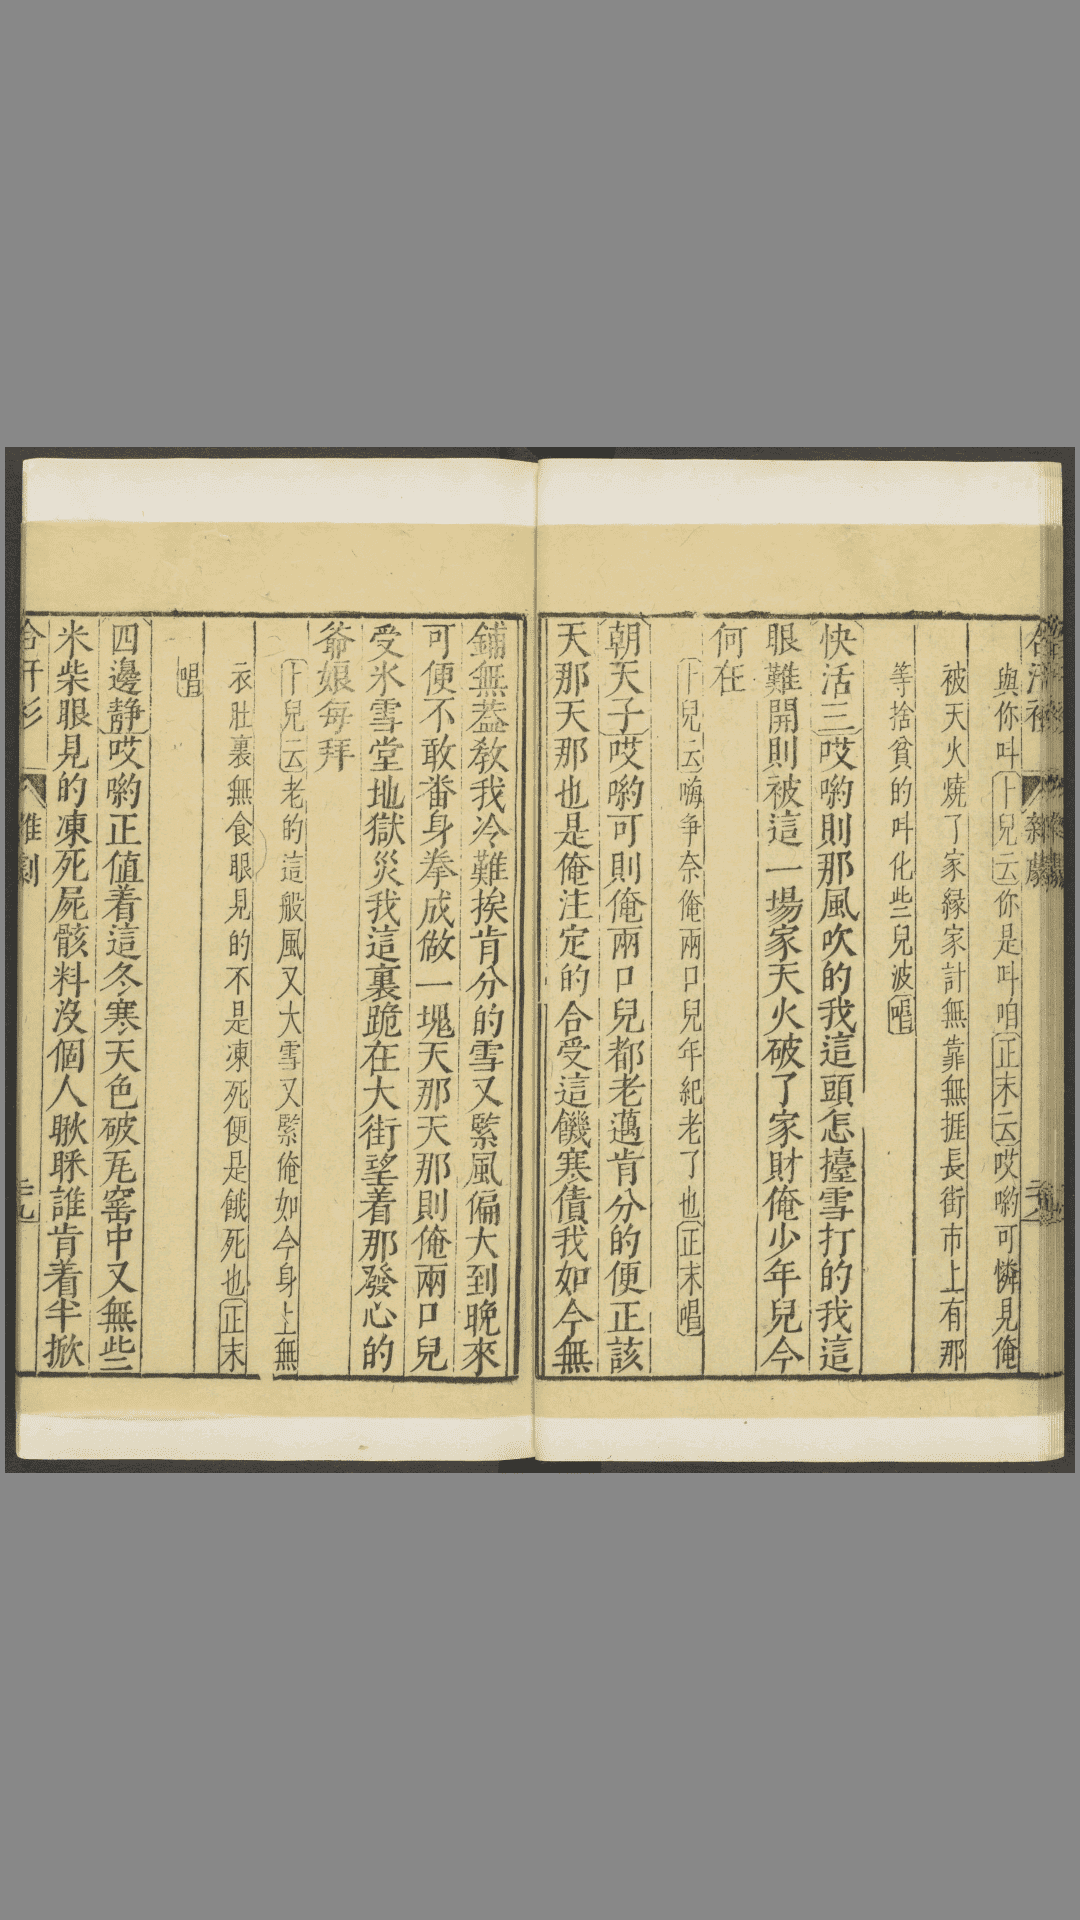 與你叫卜兒云你是叫咱正末云哎喲可憐見俺
被天火燒了家緣家計無靠無捱長街市上有那
等捨貧的叫化些兒波唱
快活三哎喲則那風吹的我這頭怎擡雪打的我這
眼難開則被這一場家天火破了家財俺少年兒今
何在
卜兒云嗨爭奈俺兩口兒年紀老了也正末唱
朝天子哎喲可則俺兩口兒都老邁肯分的便正該
天那天那也是俺注定的合受這饑寒債我如今無
鋪無蓋教我冷難挨肯分的雪又緊風偏大到晚來
可便不敢番身拳成做一塊天那天那則俺兩口兒
受氷雪堂地獄災我這裏跪在大街望着那發心的
爺娘每拜
卜兒云老的這般風又大雪又緊俺如今身上無
衣肚裏無食眼見的不是凍死便是餓死也正末
唱
四邊靜哎喲正値着這冬寒天色破瓦窰中又無些
米柴眼見的凍死屍骸料沒個人瞅睬誰肯着半掀
合汗衫 雜劇 二九